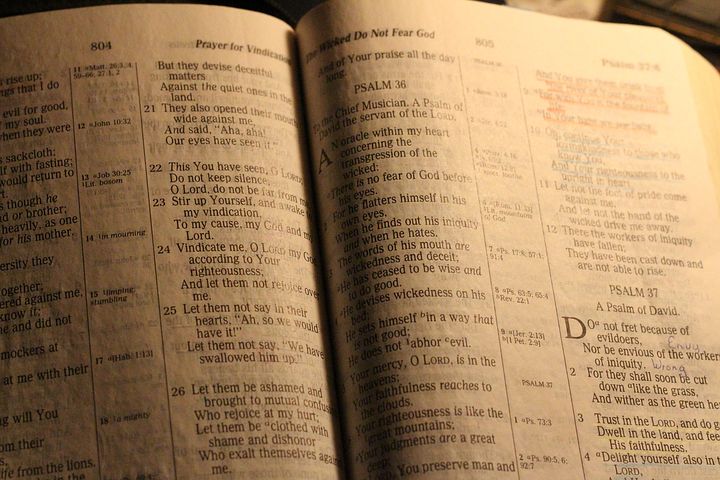 804
Prayer for Vindication
rise up;
ngs that I do
evil for good,
of my soul.
when they were
sackcloth:
self with fasting;
would return to
as though he
d or brother;
heavily, as one
for his mother.
versity they
together;
ered against me,
know it;
me and did not
mockers at
at me with their
g will You
om their
life from the lions.
11 Matt. 26:3, 4
59–66; 27:1, 2
12 John 10:32
13 Job 30:25
Lit. bosom
14 in mourning
15 limping,
stumbling
17 [Hab. 1:13]
18 a mighty
But they devise deceitful
matters
Against the quiet ones in the
land.
21 They also opened their mouth
wide against me,
And said, "Aha, aha!
Our eyes have seen it."
22 This You have seen, O LORD;
Do not keep silence.
O Lord, do not be far from me.
23 Stir up Yourself, and awake
my vindication,
To my cause, my God and my
Lord.
24 Vindicate me, O LORD my God,
according to Your
righteousness;
And let them not rejoice over
me.
25 Let them not say in their
hearts, "Ah, so we would
have it!"
Let them not say, "We have
swallowed him up."
26 Let them be ashamed and
brought to mutual confus
Who rejoice at my hurt;
Let them be clothed with
shame and dishonor
Who exalt themselves aga
me.
The Wicked Do Not Fear God
805
Psalm 37:4
And of Your praise all the day
long.
PSALM 36
To the Chief Musician. A Psalm of
David the servant of the LORD.
AN oracle within my heart
concerning the
transgression of the
wicked:
There is no fear of God before
his eyes.
2 For he flatters himself in his
own eyes,
When he finds out his iniquity
and when he hates.
3 The words of his mouth are
wickedness and deceit;
He has ceased to be wise and
to do good.
4 He devises wickedness on his
bed;
He sets himself bin a way that
is not good;
He does not 1abhor cevil.
Your mercy, O LORD, is in the
heavens;
Your faithfulness reaches to
the clouds.
Your righteousness is like the
great mountains;
Your judgments are a great
deep;
O LORD, You preserve man and
7 Ps. 17:8; 57:1;
91:4
8 Ps. 63:5; 65:4
Rev. 22:1
9 [Jer. 2:13]
[1 Pet. 2:9]
PSALM 37
1 Ps. 73:3
2 Ps. 90:5, 6;
92:7
upright in heart.
11 Let not the foot of pride come
against me,
And let not the hand of the
wicked drive me away.
12 There the workers of iniquity
have fallen;
They have been cast down and
are not able to rise.
PSALM 37
A Psalm of David.
DO not fret because of
evildoers,
Envy
Nor be envious of the workers
of iniquity. Wrong
2 For they shall soon be cut
down like the grass,
And wither as the green he
3 Trust in the LORD, and do g
Dwell in the land, and fee
His faithfulness.
4 Delight yourself also in t
LORD,